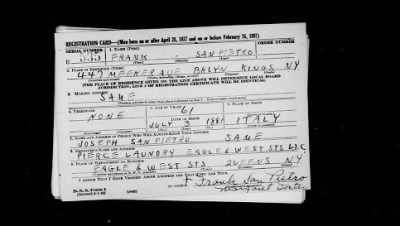 REGISTRATION CARD—(Men born on or after April 28, 1877 and on or before February 16, 1897)
SERIAL NUMBER 1. NAME (Print) ORDER NUMBER
FRANK - SAN PIETRO
2. PLACE OF RESIDENCE (Print)
447 MEEKER AVE BKLYN KINGS NY
[THE PLACE OF RESIDENCE GIVEN ON THE LINE ABOVE WILL DETERMINE LOCAL BOARD
JURISDICTION; LINE 2 OF REGISTRATION CERTIFICATE WILL BE IDENTICAL]
3. MAILING ADDRESS
SAME
4. TELEPHONE
NONE 61 ITALY
DATE OF BIRTH
JULY 3 1881
7. NAME AND ADDRESS OF PERSON WHO WILL ALWAYS KNOW YOUR ADDRESS
JOSEPH SAN PIETRO SAME
8. EMPLOYER'S NAME AND ADDRESS
PIERCE LAUNDRY EAGLE & WEST STS
9. PLACE OF EMPLOYMENT OR BUSINESS
EAGLE & WEST STS QUEENS NY
I AFFIRM THAT I HAVE VERIFIED ABOVE ANSWERS AND THAT THEY ARE TRUE.
D. S. S. Form 1
Frank San Pietro